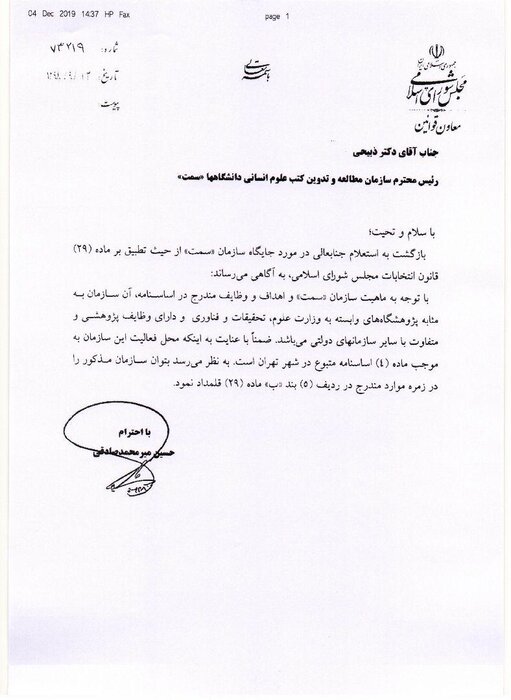 04 Dec 2019 14:37 HP Fax page 1
جمهوری اسلامی ایران
مجلس شورای اسلامی
معاون قوانین
باسمه تعالی
شماره: ۷۳۲۱۹
تاریخ: ۱۳۹۸/۹/۱۳
پیوست
جناب آقای دکتر ذبیحی
رئیس محترم سازمان مطالعه و تدوین کتب علوم انسانی دانشگاهها «سمت»
با سلام و تحیت؛
بازگشت به استعلام جنابعالی در مورد جایگاه سازمان «سمت» از حیث تطبیق بر ماده (۲۹)
قانون انتخابات مجلس شورای اسلامی، به آگاهی می‌رساند:
با توجه به ماهیت سازمان «سمت» و اهداف و وظایف مندرج در اساسنامه، آن سازمان به
مثابه پژوهشگاه‌های وابسته به وزارت علوم، تحقیقات و فناوری و دارای وظایف پژوهشی و
متفاوت با سایر سازمانهای دولتی می‌باشد. ضمناً با عنایت به اینکه محل فعالیت این سازمان به
موجب ماده (۴) اساسنامه متبوع در شهر تهران است. به نظر می‌رسد بتوان سازمان مذکور را
در زمره موارد مندرج در ردیف (۵) بند «ب» ماده (۲۹) قلمداد نمود.
با احترام
حسین میرمحمدصادقی